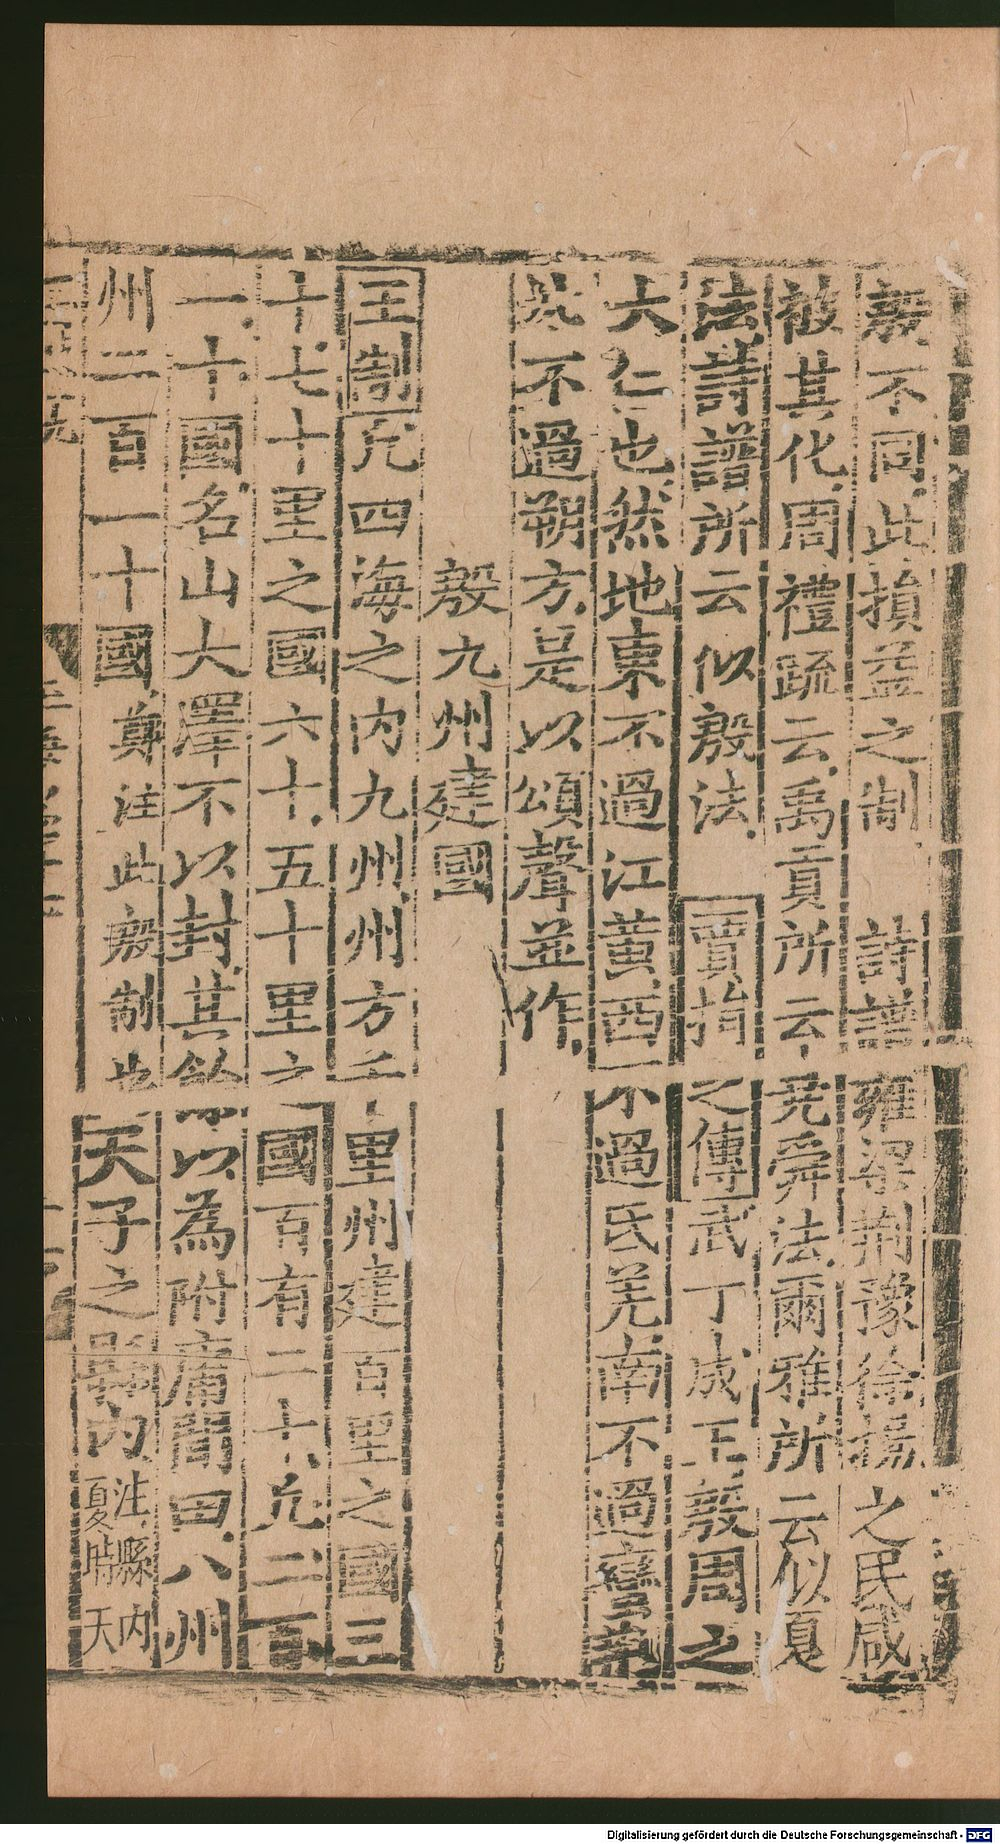 殷不同此損益之制 詩譜雍梁荆豫徐揚之民咸
被其化周禮疏云禹貢所云堯舜法爾雅所云似夏
法詩譜所云似殷法 賈指之傳武丁成王殷周之
大仁也然地東不過江黃西不過氐羌南不過蠻荆
北不過朔方是以頌聲並作
殷九州建國
王制凡四海之内九州州方千里州建百里之國三
十七十里之國六十五十里之國百有二十凡二百
一十國名山大澤不以封其餘以為附庸閒田八州
州二百一十國鄭注此殷制也天子之縣内注縣内夏時天
Digitalisierung gefördert durch die Deutsche Forschungsgemeinschaft - DFG